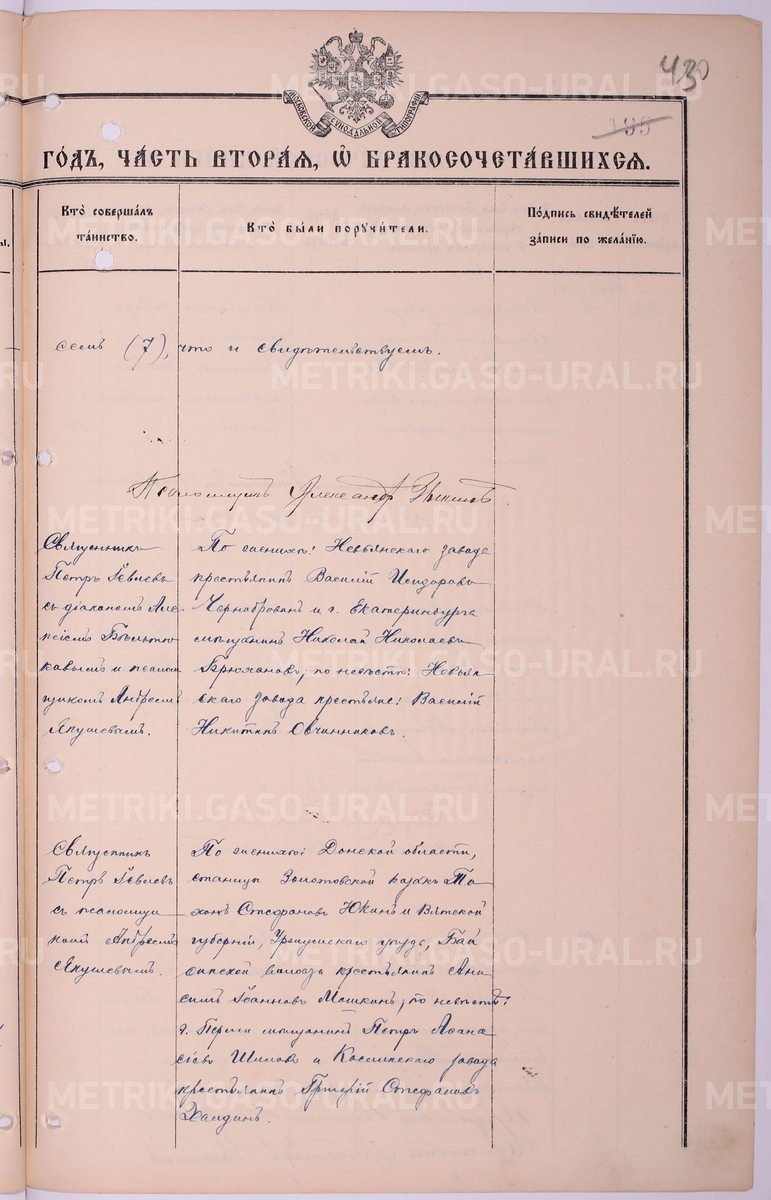 430
195
МОСКОВСКОЙ СѴНОДАЛЬНОЙ ТИПОГРАФІИ
ГО́ДЪ, ЧА́СТЬ ВТОРА́Я, Ѡ҆ БРАКОСОЧЕТА́ВШИХСЯ.
Кто̀ соверша́лъ
та́инство.
Кто̀ бы́ли порꙋчи́тели.
По́дпись свидѣ́телей
за́писи по жела́нїю.
семь (7), что и свидѣтельствуемъ.
Псаломщикъ Александр
Священникъ
Петръ Іевлевъ
съ діакономъ Але
ксіемъ
ковымъ и псалом
щикомъ Андреемъ
Якушевымъ.
По женихѣ: Невьянскаго завода
крестьянинъ Василій Исидоровъ
Чернобровинъ и г. Екатеринбурга
мѣщанинъ Николай Николаевъ
Брюхановъ; по невѣстѣ: Невьян
скаго завода крестьяне: Василій
Никитинъ Овчинниковъ.
Священникъ
Петръ Іевлевъ
съ псаломщи
комъ Андреемъ
Якушевымъ.
По женихѣ: Донской области,
станицы Золотовской казакъ Па
хомъ Стефановъ Юкинъ и Вятской
губерніи, Уржумскаго уѣзда, Бай
синской волости крестьянинъ Ани
симъ Іоанновъ Машкинъ; по невѣстѣ:
г. Перми мѣщанинъ Петръ Афана
сіевъ Шиловъ и Каслинскаго завода
крестьянинъ Григорій Стефановъ
Халдинъ.
METRIKI.GASO-URAL.RU